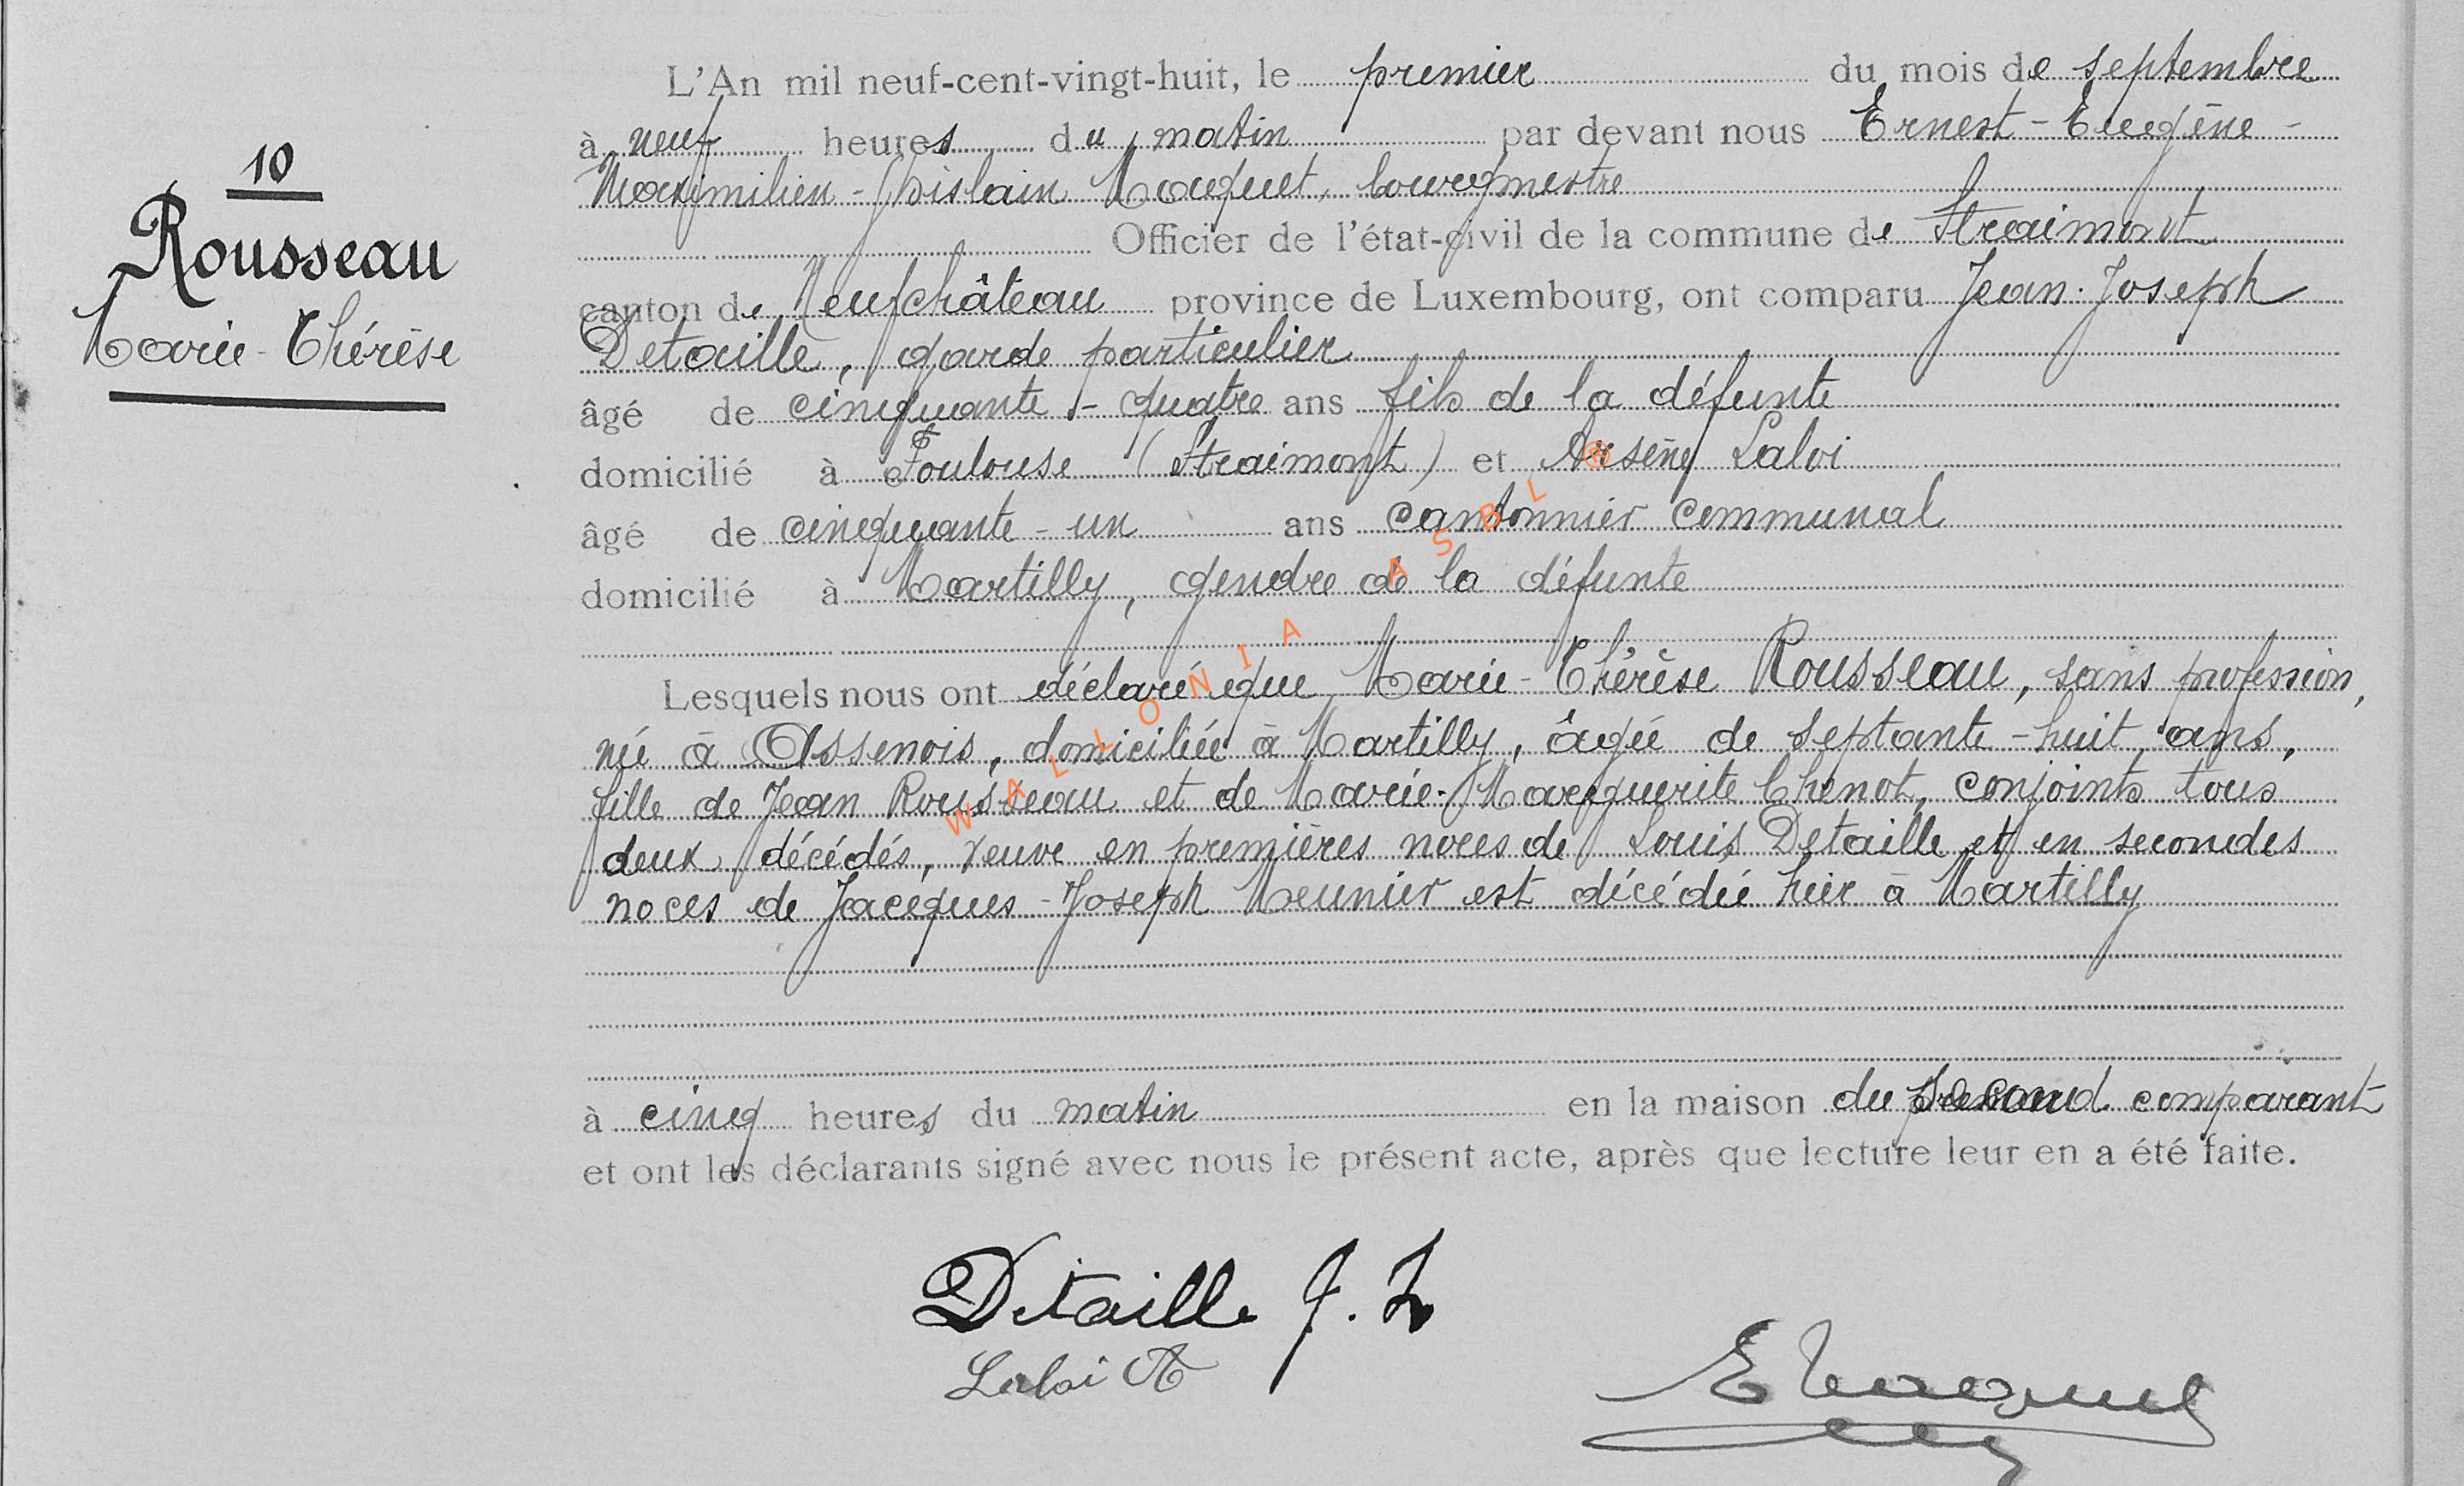 10
Rousseau
Marie-Thérèse
L'An mil neuf-cent-vingt-huit, le premier du mois de septembre
à neuf heures du matin par devant nous Ernest-Eugène-
Maximilien-Ghislain Maquet, bourgmestre
Officier de l'état-civil de la commune de Straimont
canton de Neufchâteau province de Luxembourg, ont comparu Jean-Joseph
Detaille, garde particulier
âgé de cinquante-quatre ans fils de la défunte
domicilié à Toulouse (Straimont) et Arsène Laloi
âgé de cinquante-un ans cantonnier communal
domicilié à Martilly, gendre de la défunte
Lesquels nous ont déclaré que Marie-Thérèse Rousseau, sans profession,
née à Assenois, domiciliée à Martilly, âgée de septante-huit ans,
fille de Jean Rousseau et de Marie-Marguerite Chenot, conjoints tous
deux décédés, veuve en premières noces de Louis Detaille et en secondes
noces de Jacques-Joseph Meunier est décédée hier à Martilly
à cinq heures du matin en la maison du second comparant
et ont les déclarants signé avec nous le présent acte, après que lecture leur en a été faite.
Detaille J. J
Laloi A
E Maquet
WALLONIA ASBL ®